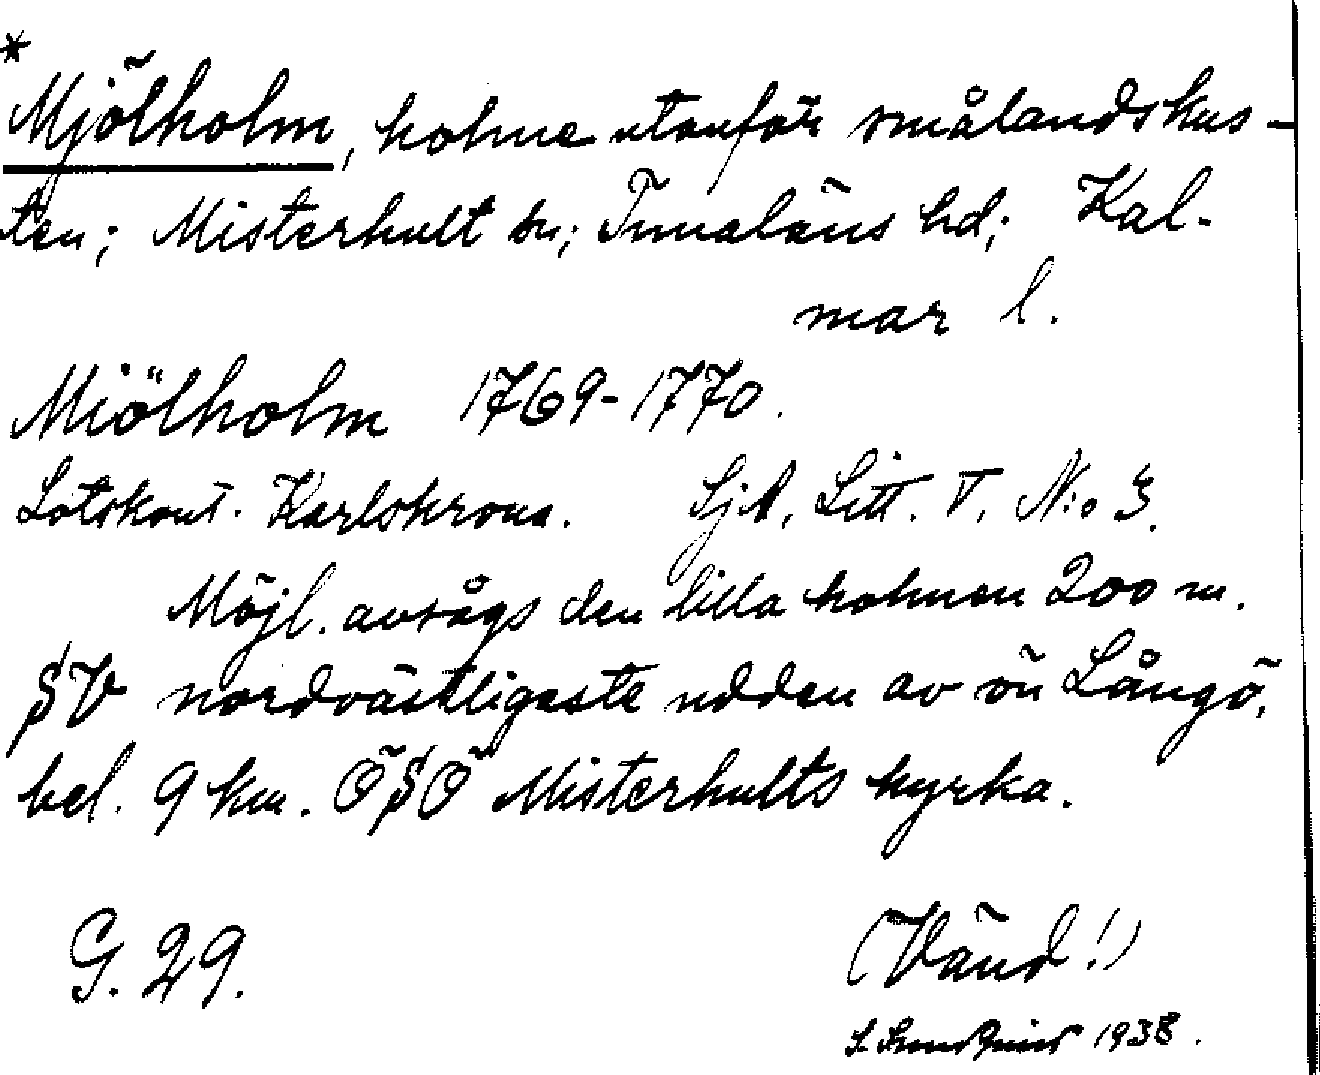 *
Mjölholm, holme utanför smålandskus-
ten; Misterhult sn; Tunaläns hd; Kal-
mar l.
Miölholm 1769-1770.
Lotskont. Karlskrona. SjA, Litt. T, N:o 3.
Möjl. avsågs den lilla holmen 200 m.
SV nordvästligaste udden av ön Långö,
bel. 9 km. ÖSÖ Misterhults kyrka.
G. 29.
(Vänd!)
1938.